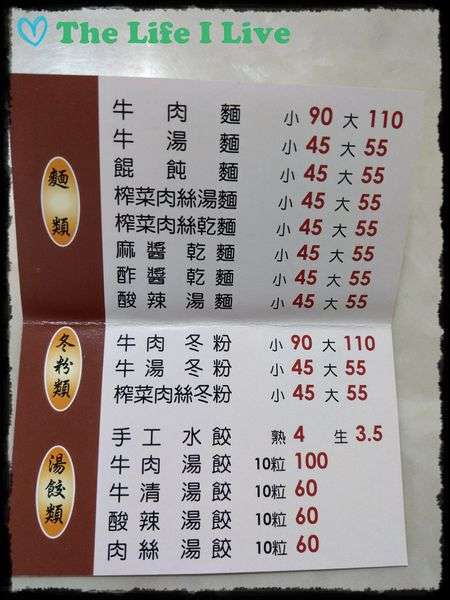 The Life I Live
麵類
牛肉麵 小 90 大 110
牛湯麵 小 45 大 55
餛飩麵 小 45 大 55
榨菜肉絲湯麵 小 45 大 55
榨菜肉絲乾麵 小 45 大 55
麻醬乾麵 小 45 大 55
酢醬乾麵 小 45 大 55
酸辣湯麵 小 45 大 55
冬粉類
牛肉冬粉 小 90 大 110
牛湯冬粉 小 45 大 55
榨菜肉絲冬粉 小 45 大 55
湯餃類
手工水餃 熟 4 生 3.5
牛肉湯餃 10粒 100
牛清湯餃 10粒 60
酸辣湯餃 10粒 60
肉絲湯餃 10粒 60